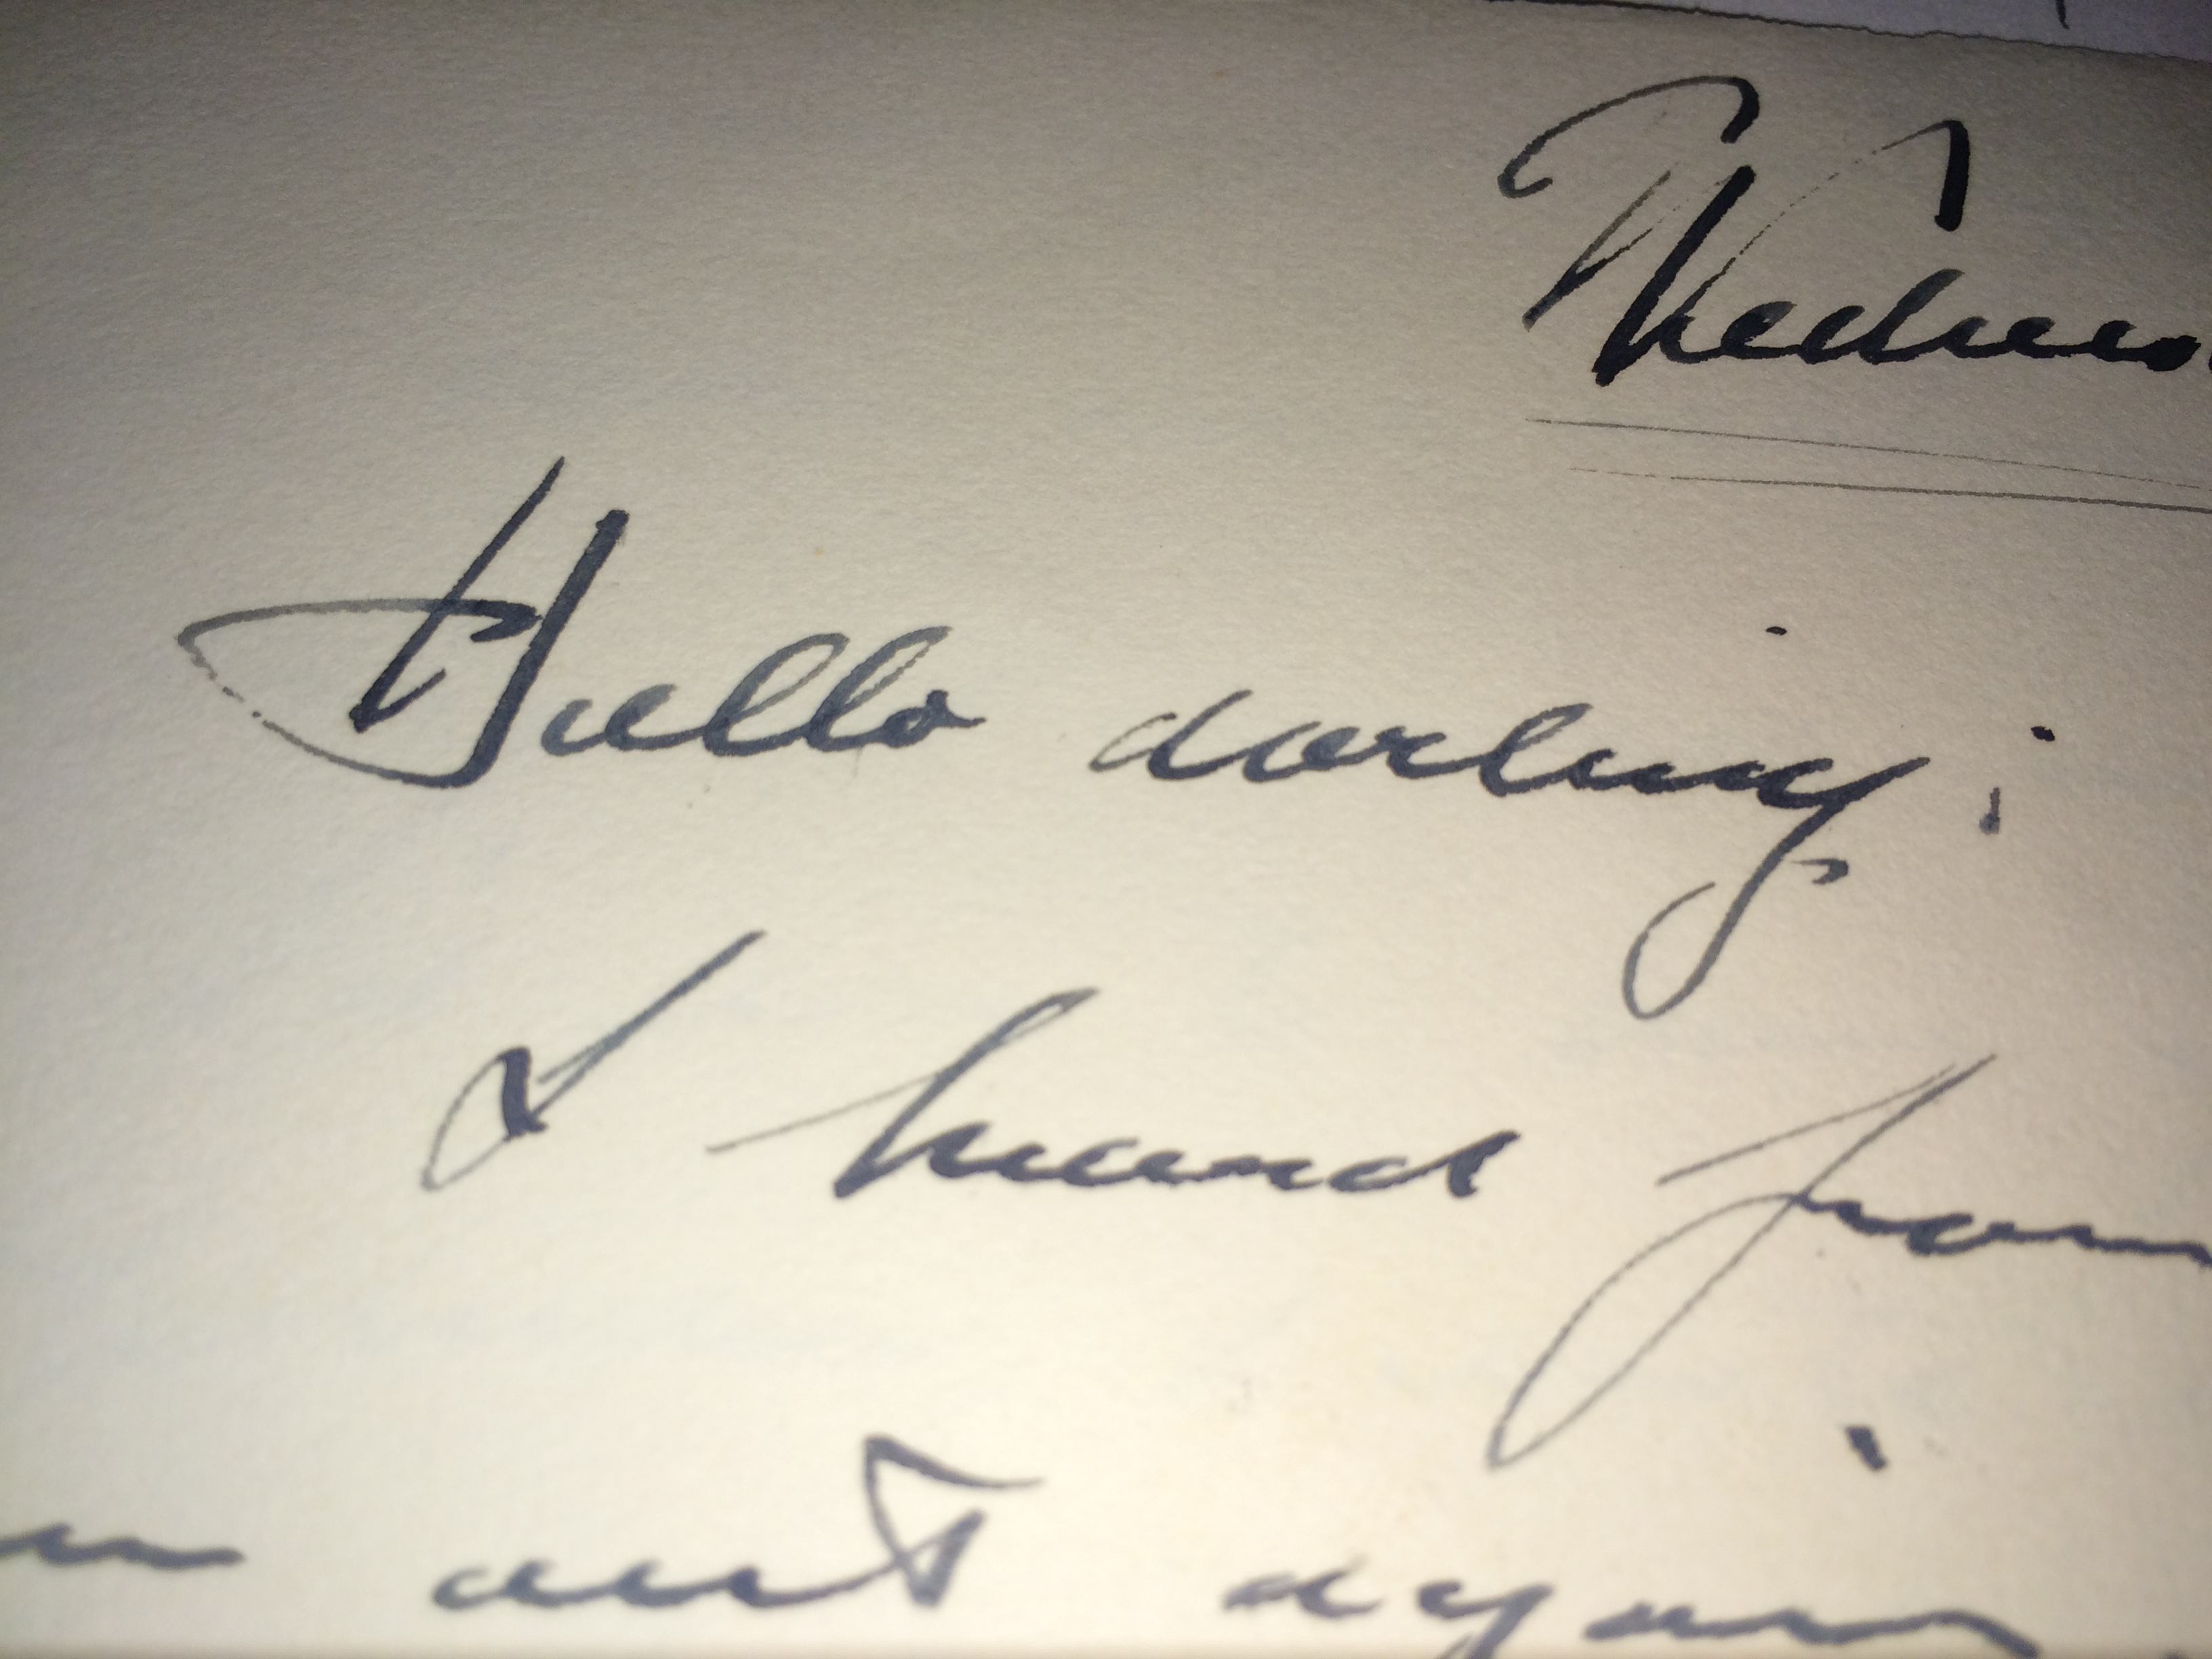 Wednes
Hello darling;
I heard from
aunt again